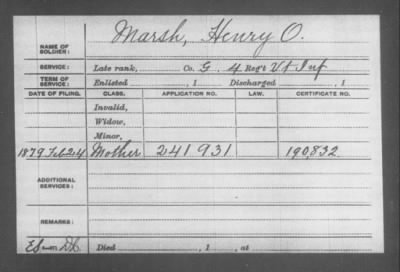 NAME OF SOLDIER: Marsh, Henry O.
SERVICE: Late rank, Co. G, 4 Reg't Vt Inf
TERM OF SERVICE: Enlisted , 1 Discharged , 1
DATE OF FILING. CLASS. APPLICATION NO. LAW. CERTIFICATE NO.
Invalid,
Widow,
Minor,
1879 Feb 24 Mother 241 931 190,832.
ADDITIONAL SERVICES:
REMARKS:
Died , 1 , at